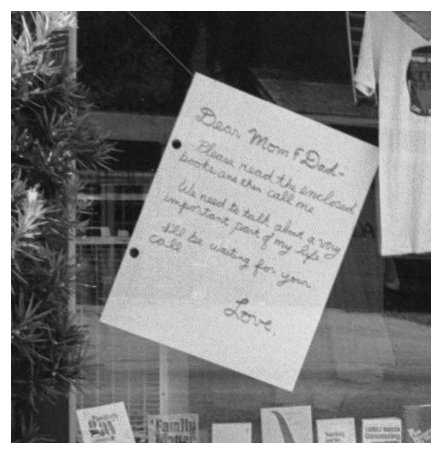 Dear Mom & Dad-
Please read the enclosed
books and then call me
We need to talk about a very
important part of my life
I'll be waiting for your
call
Love,
gay
Family